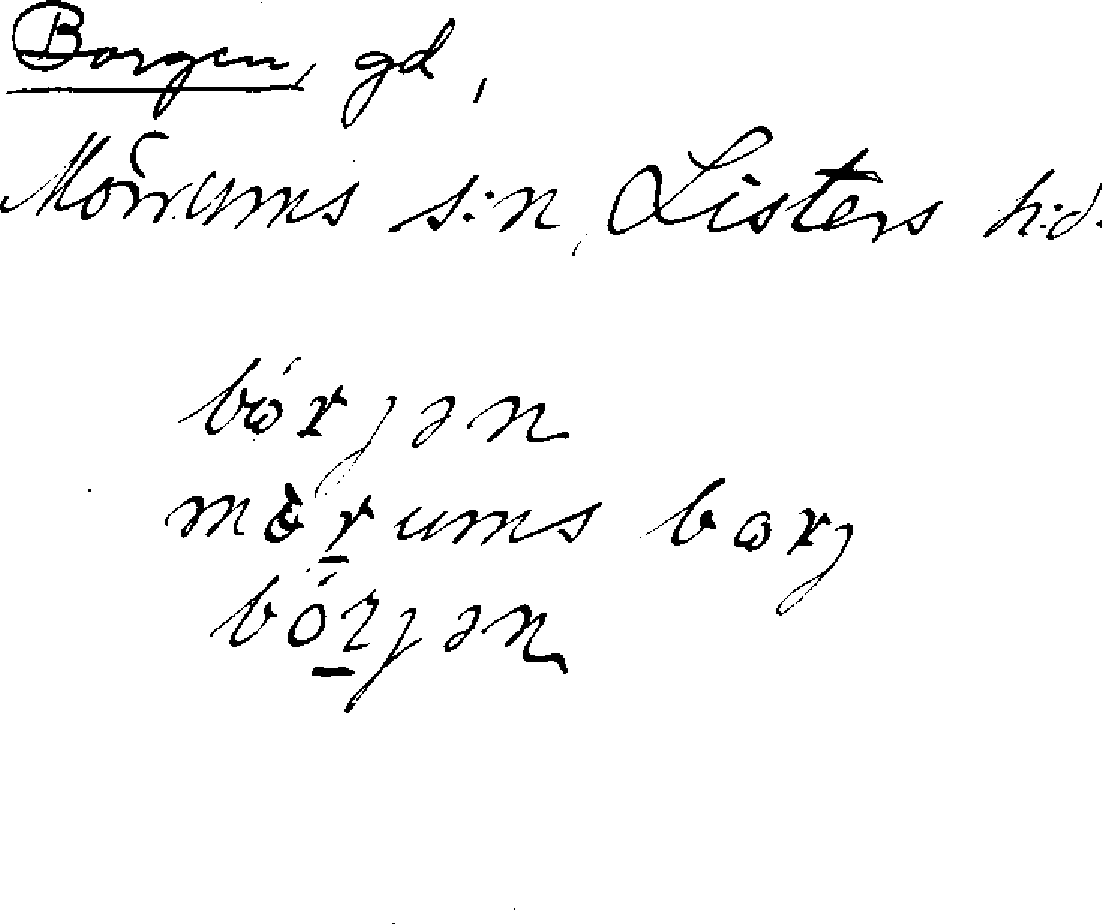 Borgen, gd,
Mörrums s:n, Listers h:d.
bɷ́rjən
mɵ̀rums bɷrj
bórjən